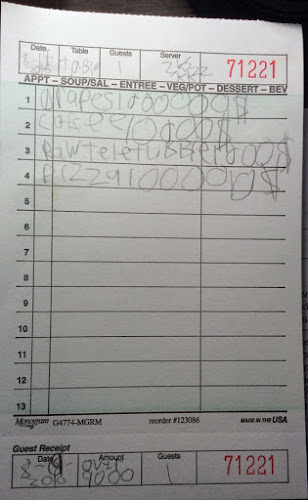 Date Table Guests Server
1 71221
APPT – SOUP/SAL – ENTREE – VEG/POT – DESSERT – BEV
1 grapes1000000$
2 10000$
3 Rawteletubbie1000$
4 Pizza100000$
5
6
7
8
9
10
11
12
13
Monogram G4774-MGRM reorder #123086 MADE IN THE USA
Guest Receipt
Date Amount Guests
over 9000 1 71221